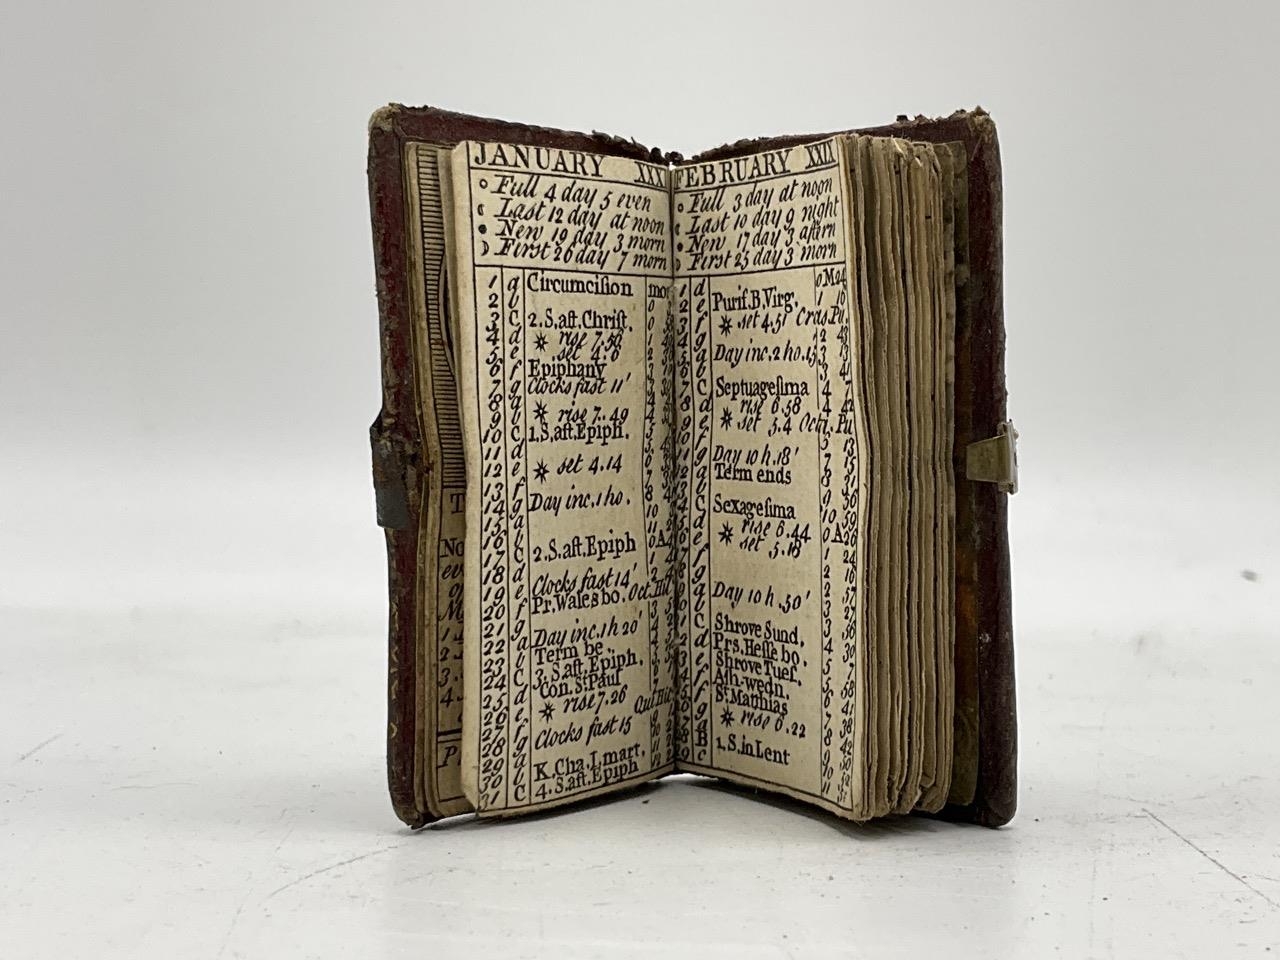 JANUARY XXX
Full 4 day 5 even
Last 12 day at noon
New 19 day 3 morn
First 26 day 7 morn
1 a Circumciſion mor
2 b 0
3 C 2.S.aft.Chriſt. 0
4 d ☀ rise 7.58 1
5 e set 4.6 2
6 f Epiphany 3
7 g Clocks fast 11' 3
8 a
9 b ☀ rise 7.49 4
10 C 1.S.aft.Epiph. 5
11 d 5
12 e ☀ set 4.14 6
13 f 7
14 g Day inc.1 ho. 8
15 a 10
16 b 11
17 C 2.S.aft.Epiph 0A
18 d 1
19 e Clocks fast 14' 2
20 f Pr.Wales bo. Oct.Hil
21 g 3
22 a Day inc.1h 20'
23 b Term be
24 C 3.S.aft.Epiph.
25 d Con.St Paul
26 e ☀ rise 7.26 Qui.Hil
27 f
28 g Clocks fast 15
29 a
30 b K.Cha.I.mart.
31 C 4.S.aft.Epiph
FEBRUARY XXIX
Full 3 day at noon
Last 10 day 9 night
New 17 day 3 aftern
First 25 day 3 morn
1 d 0M24
2 e Purif.B.Virg. 1 16
3 f ☀ set 4.51 Cras.Pu.
4 g 2 43
5 a Day inc.2 ho.15 3 13
6 b 3 41
7 C Septuageſima 4 7
8 d ☀ rise 6.58 4 42
9 e set 5.4 Octa.Pu
f 5 13
g Day 10 h.18' 7 15
a Term ends 8 31
b 9 56
C Sexageſima 10 59
d ☀ rise 6.44 0A26
e set 5.18
f 1 24
g 2 16
a Day 10 h.50' 2 57
b 3 27
C Shrove Sund. 3 56
d Prs.Heſſe bo. 4 30
e Shrove Tueſ. 5 7
f Aſh-wedn. 5 58
St Matthias 6 41
g ☀ rise 6.22 7 38
a 8 42
B 1.S.in Lent 9 50
c